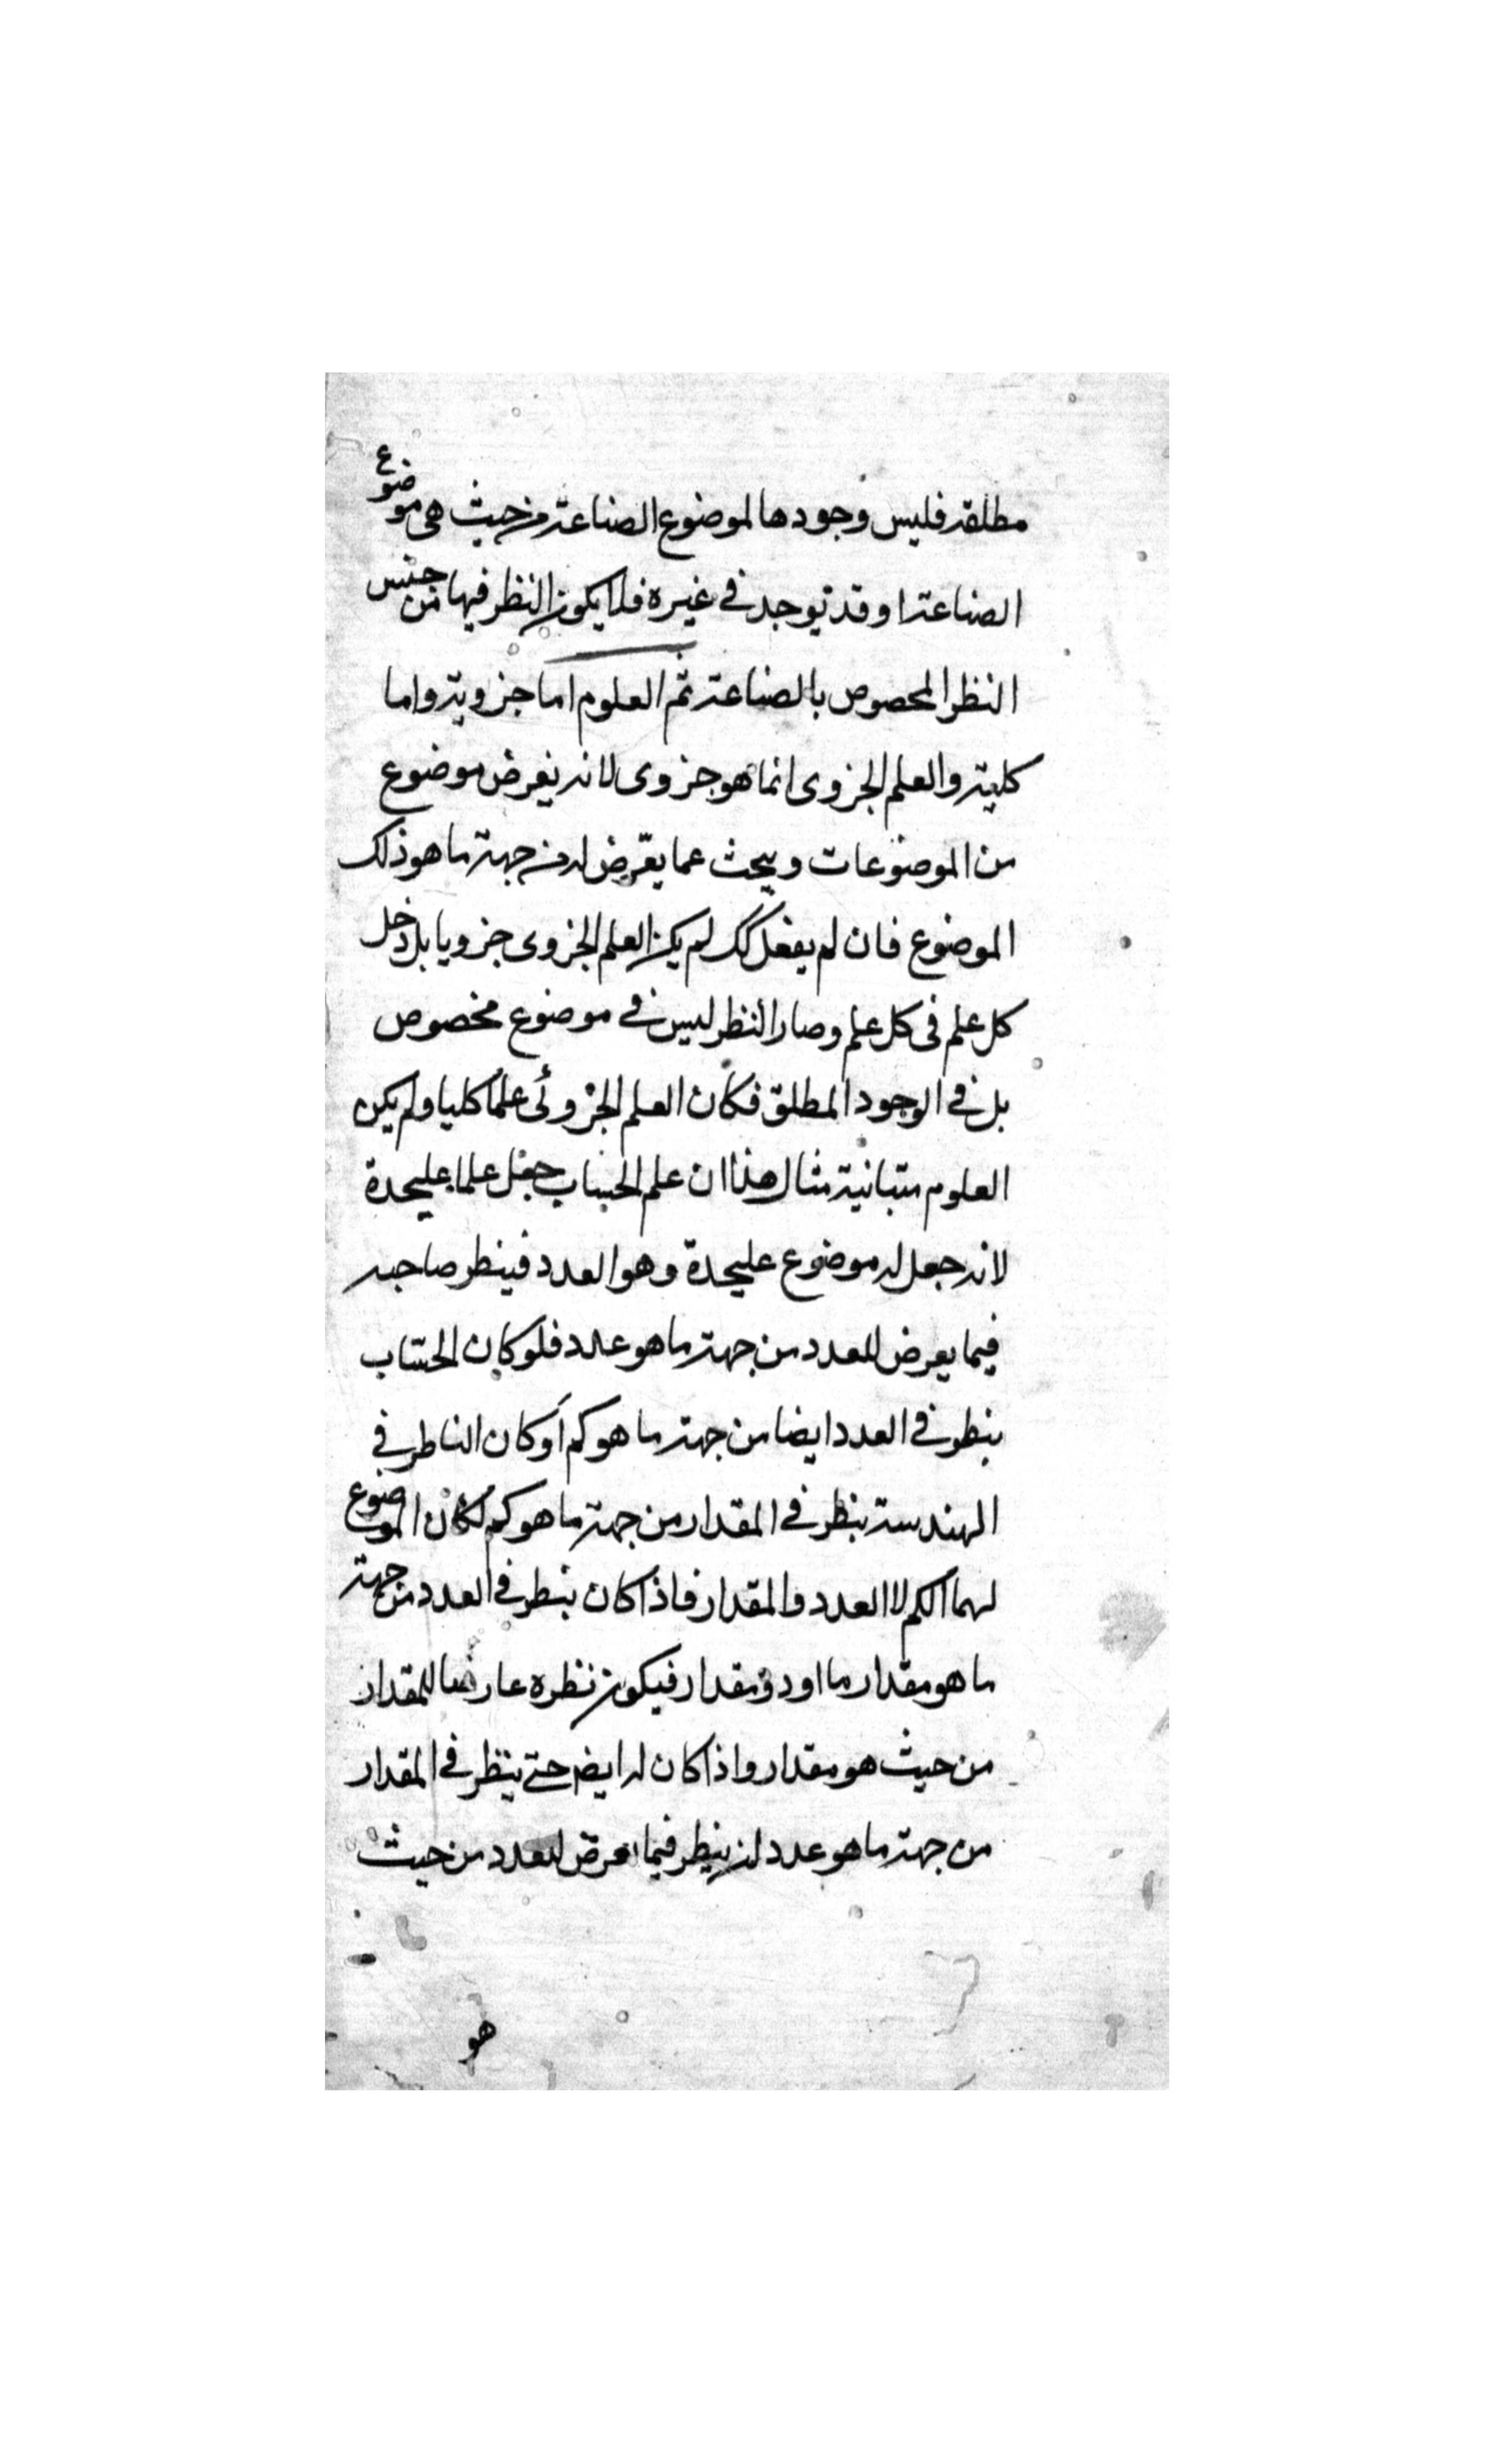 مطلقة فليس وجودها لموضوع الصناعة من حيث هى موضوع
الصناعة او قد توجد فى غيره فلا يكون النظر فيها من جنس
النظر المخصوص بالصناعة ثم العلوم اما جزوية واما
كلية والعلم الجزوى انما هو جزوى لانه يفرض موضوع
من الموضوعات ويبحث عما يعرض له من جهة ما هو ذلك
الموضوع فان لم يفعل كك لم يكن العلم الجزوى جزويا بل دخل
كل علم فى كل علم وصار النظر ليس فى موضوع مخصوص
بل فى الوجود المطلق فكان العلم الجزوئى علما كليا ولم يكن
العلوم متبانية مثال هذا ان علم الحساب جعل علما عليحدة
لانه جعل له موضوع عليحدة وهو العدد فينظر صاحبه
فيما يعرض للعدد من جهة ما هو عدد فلو كان الحساب
ينظر فى العدد ايضا من جهة ما هو كم او كان الناظر فى
الهندسة ينظر فى المقدار من جهة ما هو كم لكان الموضوع
لهما الكم لا العدد والمقدار فاذا كان ينظر فى العدد من جهة
ما هو مقدار ما او ذو مقدار فيكون نظره عارضا للمقدار
من حيث هو مقدار واذا كان له ايضا حتى ينظر فى المقدار
من جهة ما هو عدد لن ينظر فيما يعرض للعدد من حيث
هو